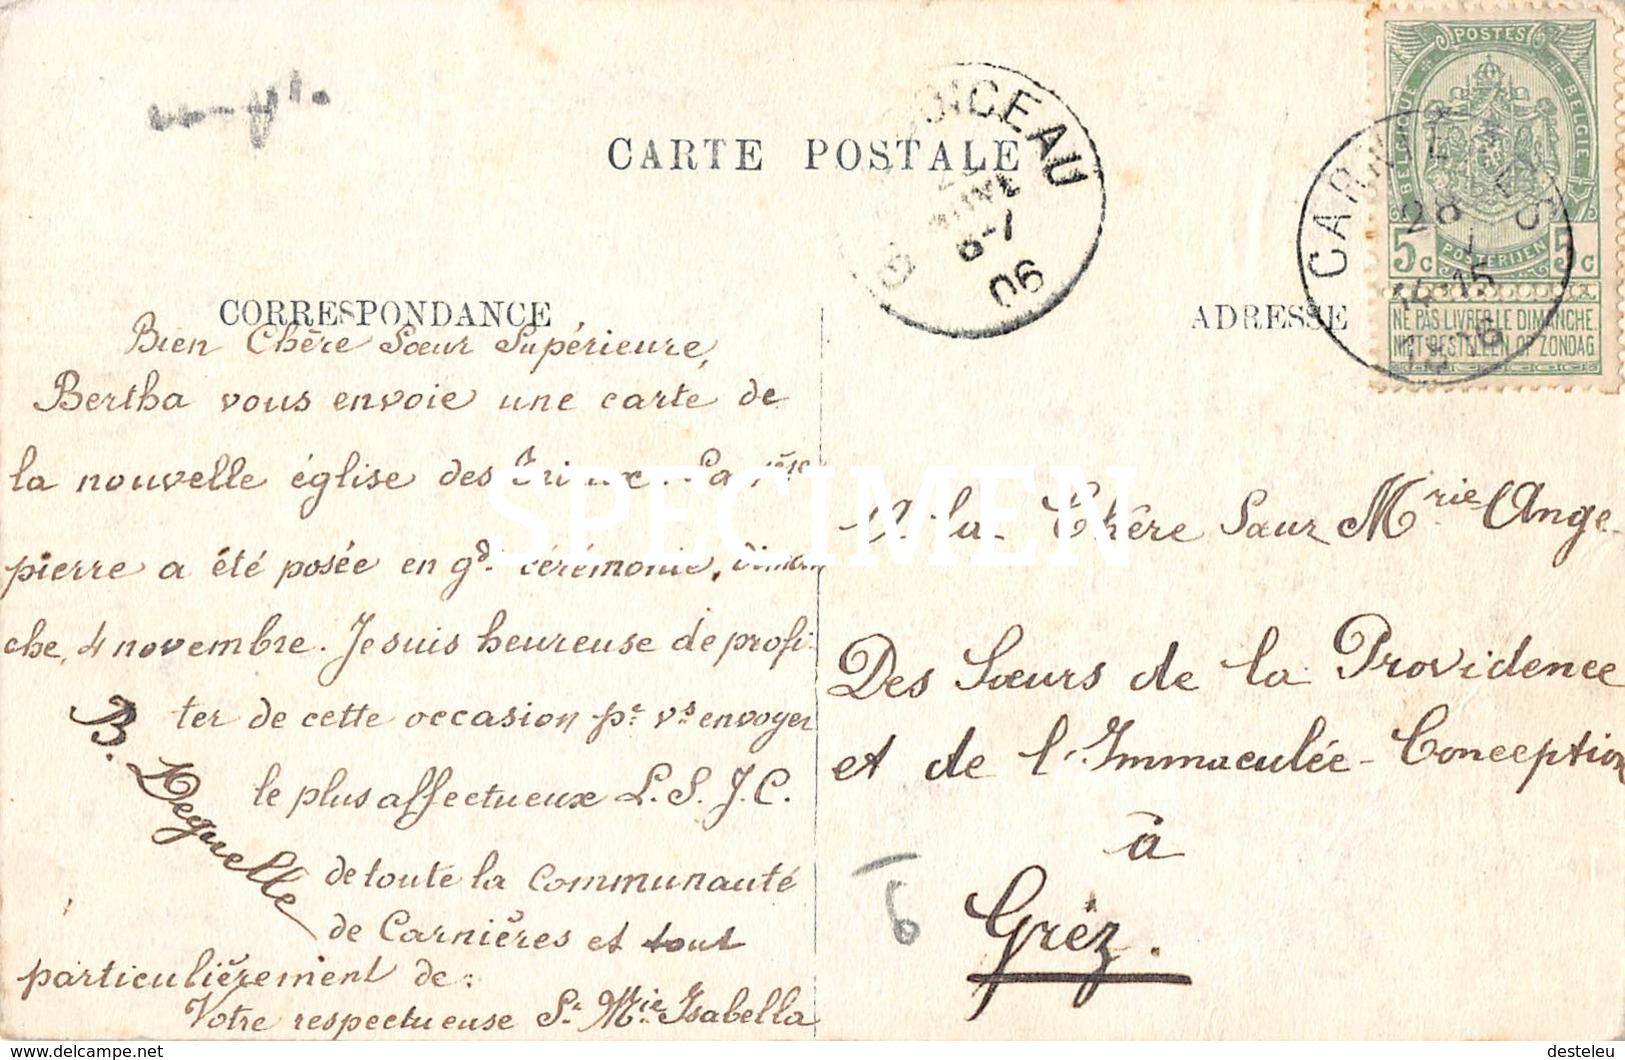 CARTE POSTALE
CORRESPONDANCE
Bien Chère Sœur Supérieure,
Bertha vous envoie une carte de
la nouvelle église des Trieux. La 1ère
pierre a été posée en gde cérémonie, diman
che, 4 novembre. Je suis heureuse de profi-
ter de cette occasion pr vs envoyer
le plus affectueux L. S. J. C.
de toute la Communauté
de Carnières et tout
particulièrement de:
Votre respectueuse Sr Mrie Isabella
B. Deguelle
ADRESSE
A la Chère Sœur Mrie Ange
Des Sœurs de la Providence
et de l'Immaculée-Conception
à
Gréz.
POSTES
BELGIQUE
BELGIE
5c POSTERIJEN 5c
NE PAS LIVRER LE DIMANCHE
NIET BESTELLEN OP ZONDAG
28
14-15
06
SPECIMEN
delcampe.net
desteleu